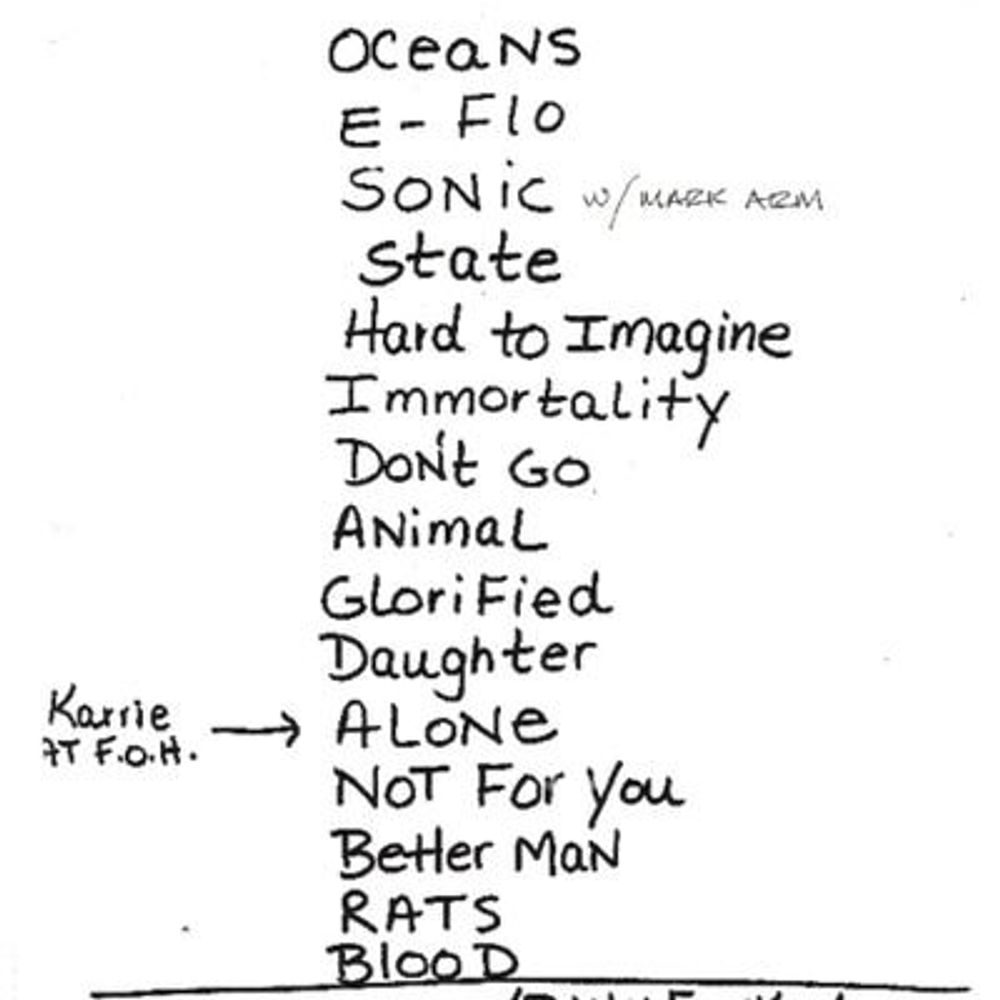 OCeaNS
E - Flo
SONiC w/ MARK ARM
State
Hard to Imagine
Immortality
DoN't GO
ANimaL
GloriFied
Daughter
Karrie
AT F.O.H. → ALONe
NOT For You
Better MaN
RATS
BlooD